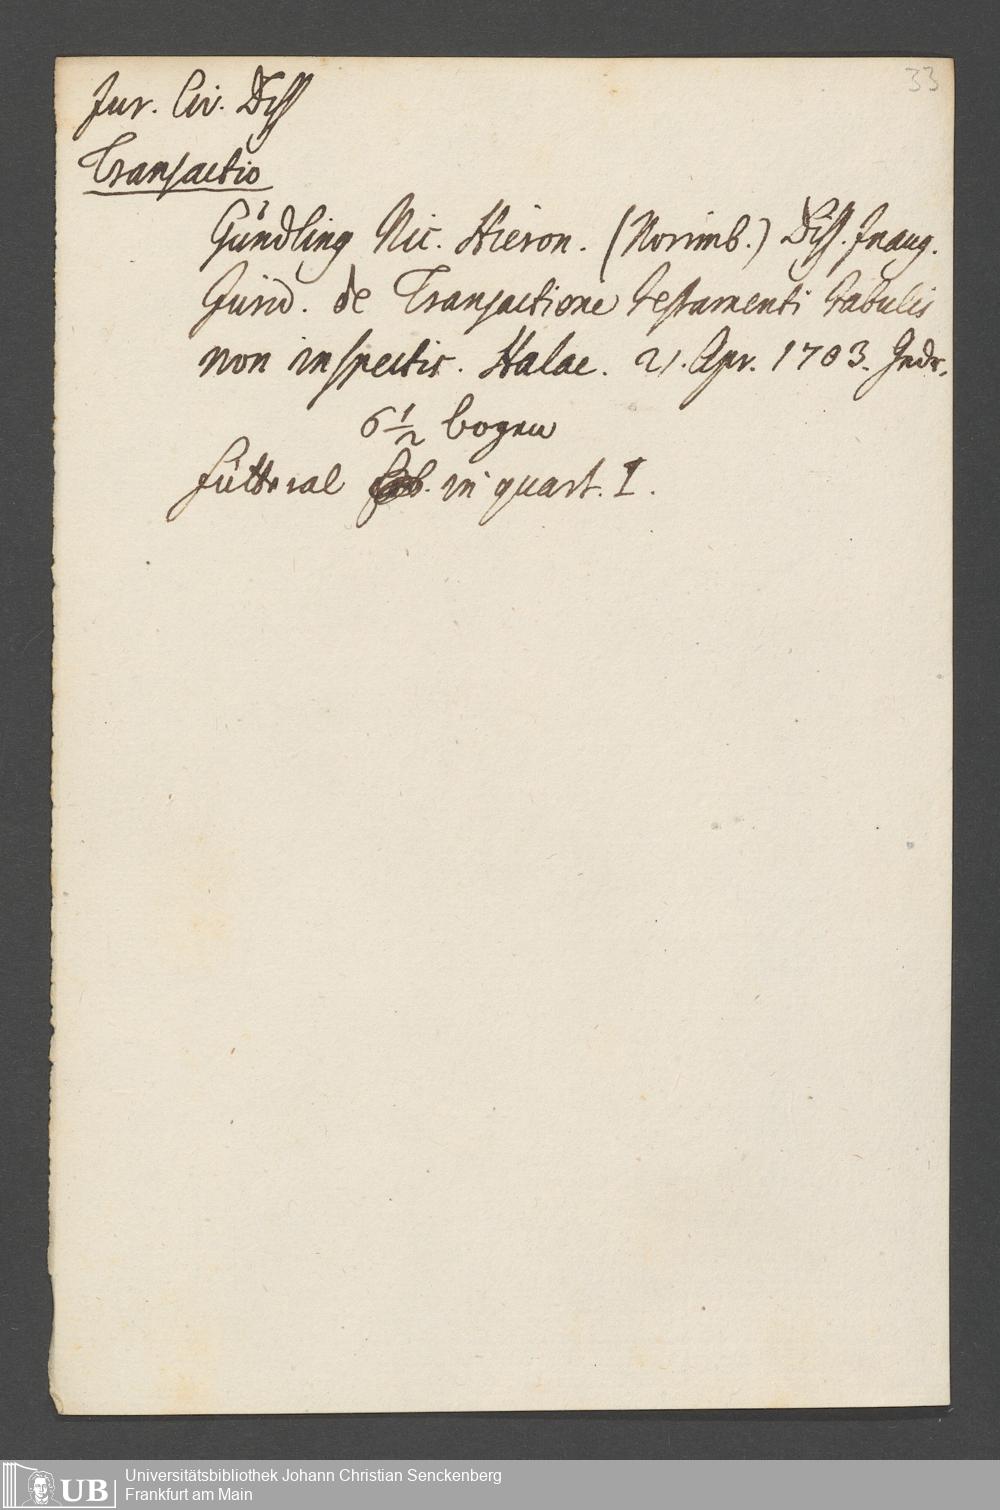 33
Jur. Civ. Diss
Transactio
Gündling Nic. Hieron. (Norimb.) Diss. Inaug.
Jurid. de Transactione testamenti tabulis
non inspectis. Halae. 21. Apr. 1703.
6 1/2 bogen
Fütteral in quart. I.
UB
Universitätsbibliothek Johann Christian Senckenberg
Frankfurt am Main